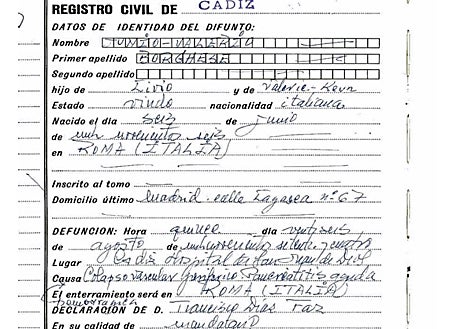 REGISTRO CIVIL DE CADIZ
DATOS DE IDENTIDAD DEL DIFUNTO:
Nombre JUNIO-VALERIO
Primer apellido BORGHESE
Segundo apellido
hijo de Livio y de Valeria-Keun
Estado viudo nacionalidad italiana
Nacido el día seis de junio
de mil novecientos seis
en ROMA (ITALIA)
Inscrito al tomo
Domicilio último Madrid-calle Lagasca nº 67
DEFUNCION: Hora quince día veintiseis
de agosto de mil novecientos setenta y cuatro
Lugar Cadiz Hospital de San Juan de Dios
Causa Colapso vascular periferico Pancreatitis aguda
El enterramiento será en ROMA (ITALIA)
DECLARACIÓN DE D. Francisco Díaz
En su calidad de mandatario